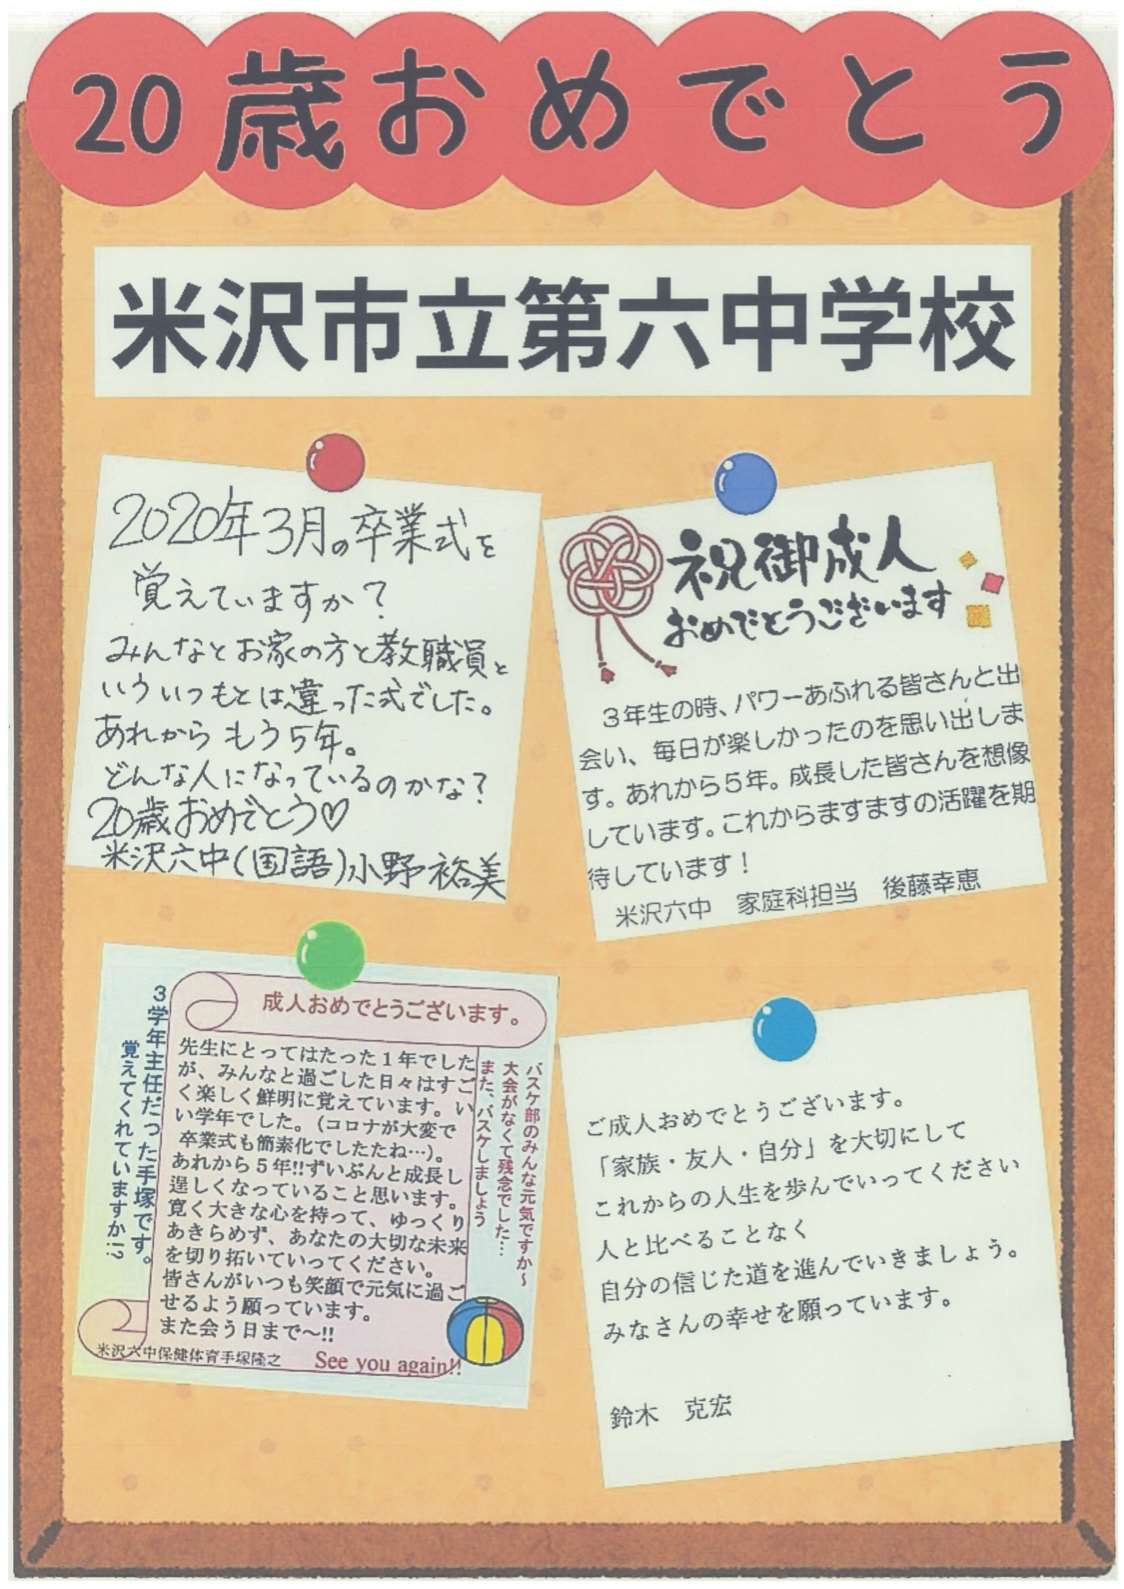 20歳おめでとう
米沢市立第六中学校
2020年3月の卒業式を
覚えていますか？
みんなとお家の方と教職員と
いういつもとは違った式でした。
あれからもう5年。
どんな人になっているのかな？
20歳おめでとう♡
米沢六中(国語)小野裕美
祝御成人
おめでとうございます
３年生の時、パワーあふれる皆さんと出
会い、毎日が楽しかったのを思い出しま
す。あれから５年。成長した皆さんを想像
しています。これからますますの活躍を期
待しています！
米沢六中　家庭科担当　後藤幸恵
３学年主任だった手塚です。
覚えてくれていますか!?
成人おめでとうございます。
先生にとってはたった１年でした
が、みんなと過ごした日々はすご
く楽しく鮮明に覚えています。い
い学年でした。（コロナが大変で
卒業式も簡素化でしたね…）。
あれから５年!!ずいぶんと成長し
逞しくなっていること思います。
寛く大きな心を持って、ゆっくり
あきらめず、あなたの大切な未来
を切り拓いていってください。
皆さんがいつも笑顔で元気に過ご
せるよう願っています。
また会う日まで～!!
バスケ部のみんな元気ですか～
大会がなくて残念でした…
また、バスケしましょう
米沢六中保健体育手塚隆之
See you again!!
ご成人おめでとうございます。
「家族・友人・自分」を大切にして
これからの人生を歩んでいってください
人と比べることなく
自分の信じた道を進んでいきましょう。
みなさんの幸せを願っています。
鈴木　克宏